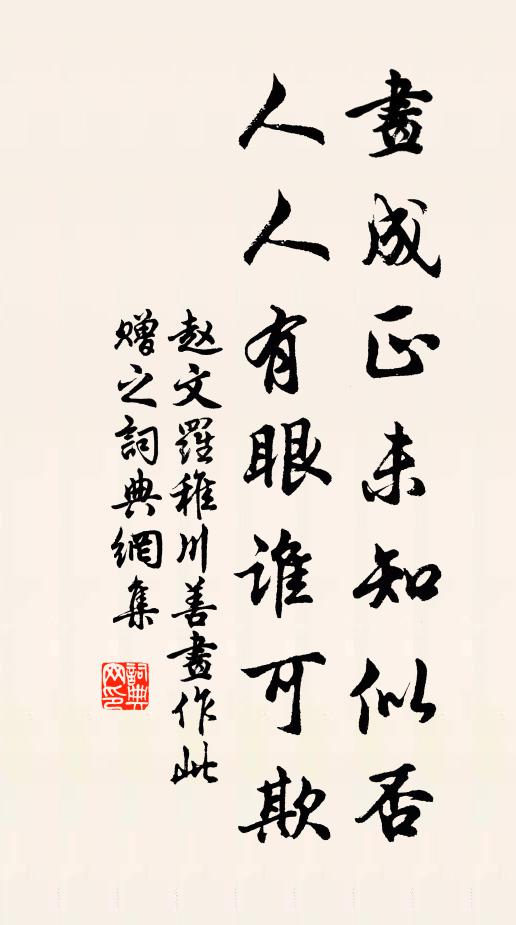 畫成正未知似否
人人有眼誰可欺
赵文羅稚川善畫作此
赠之詞典網集
詞典网印